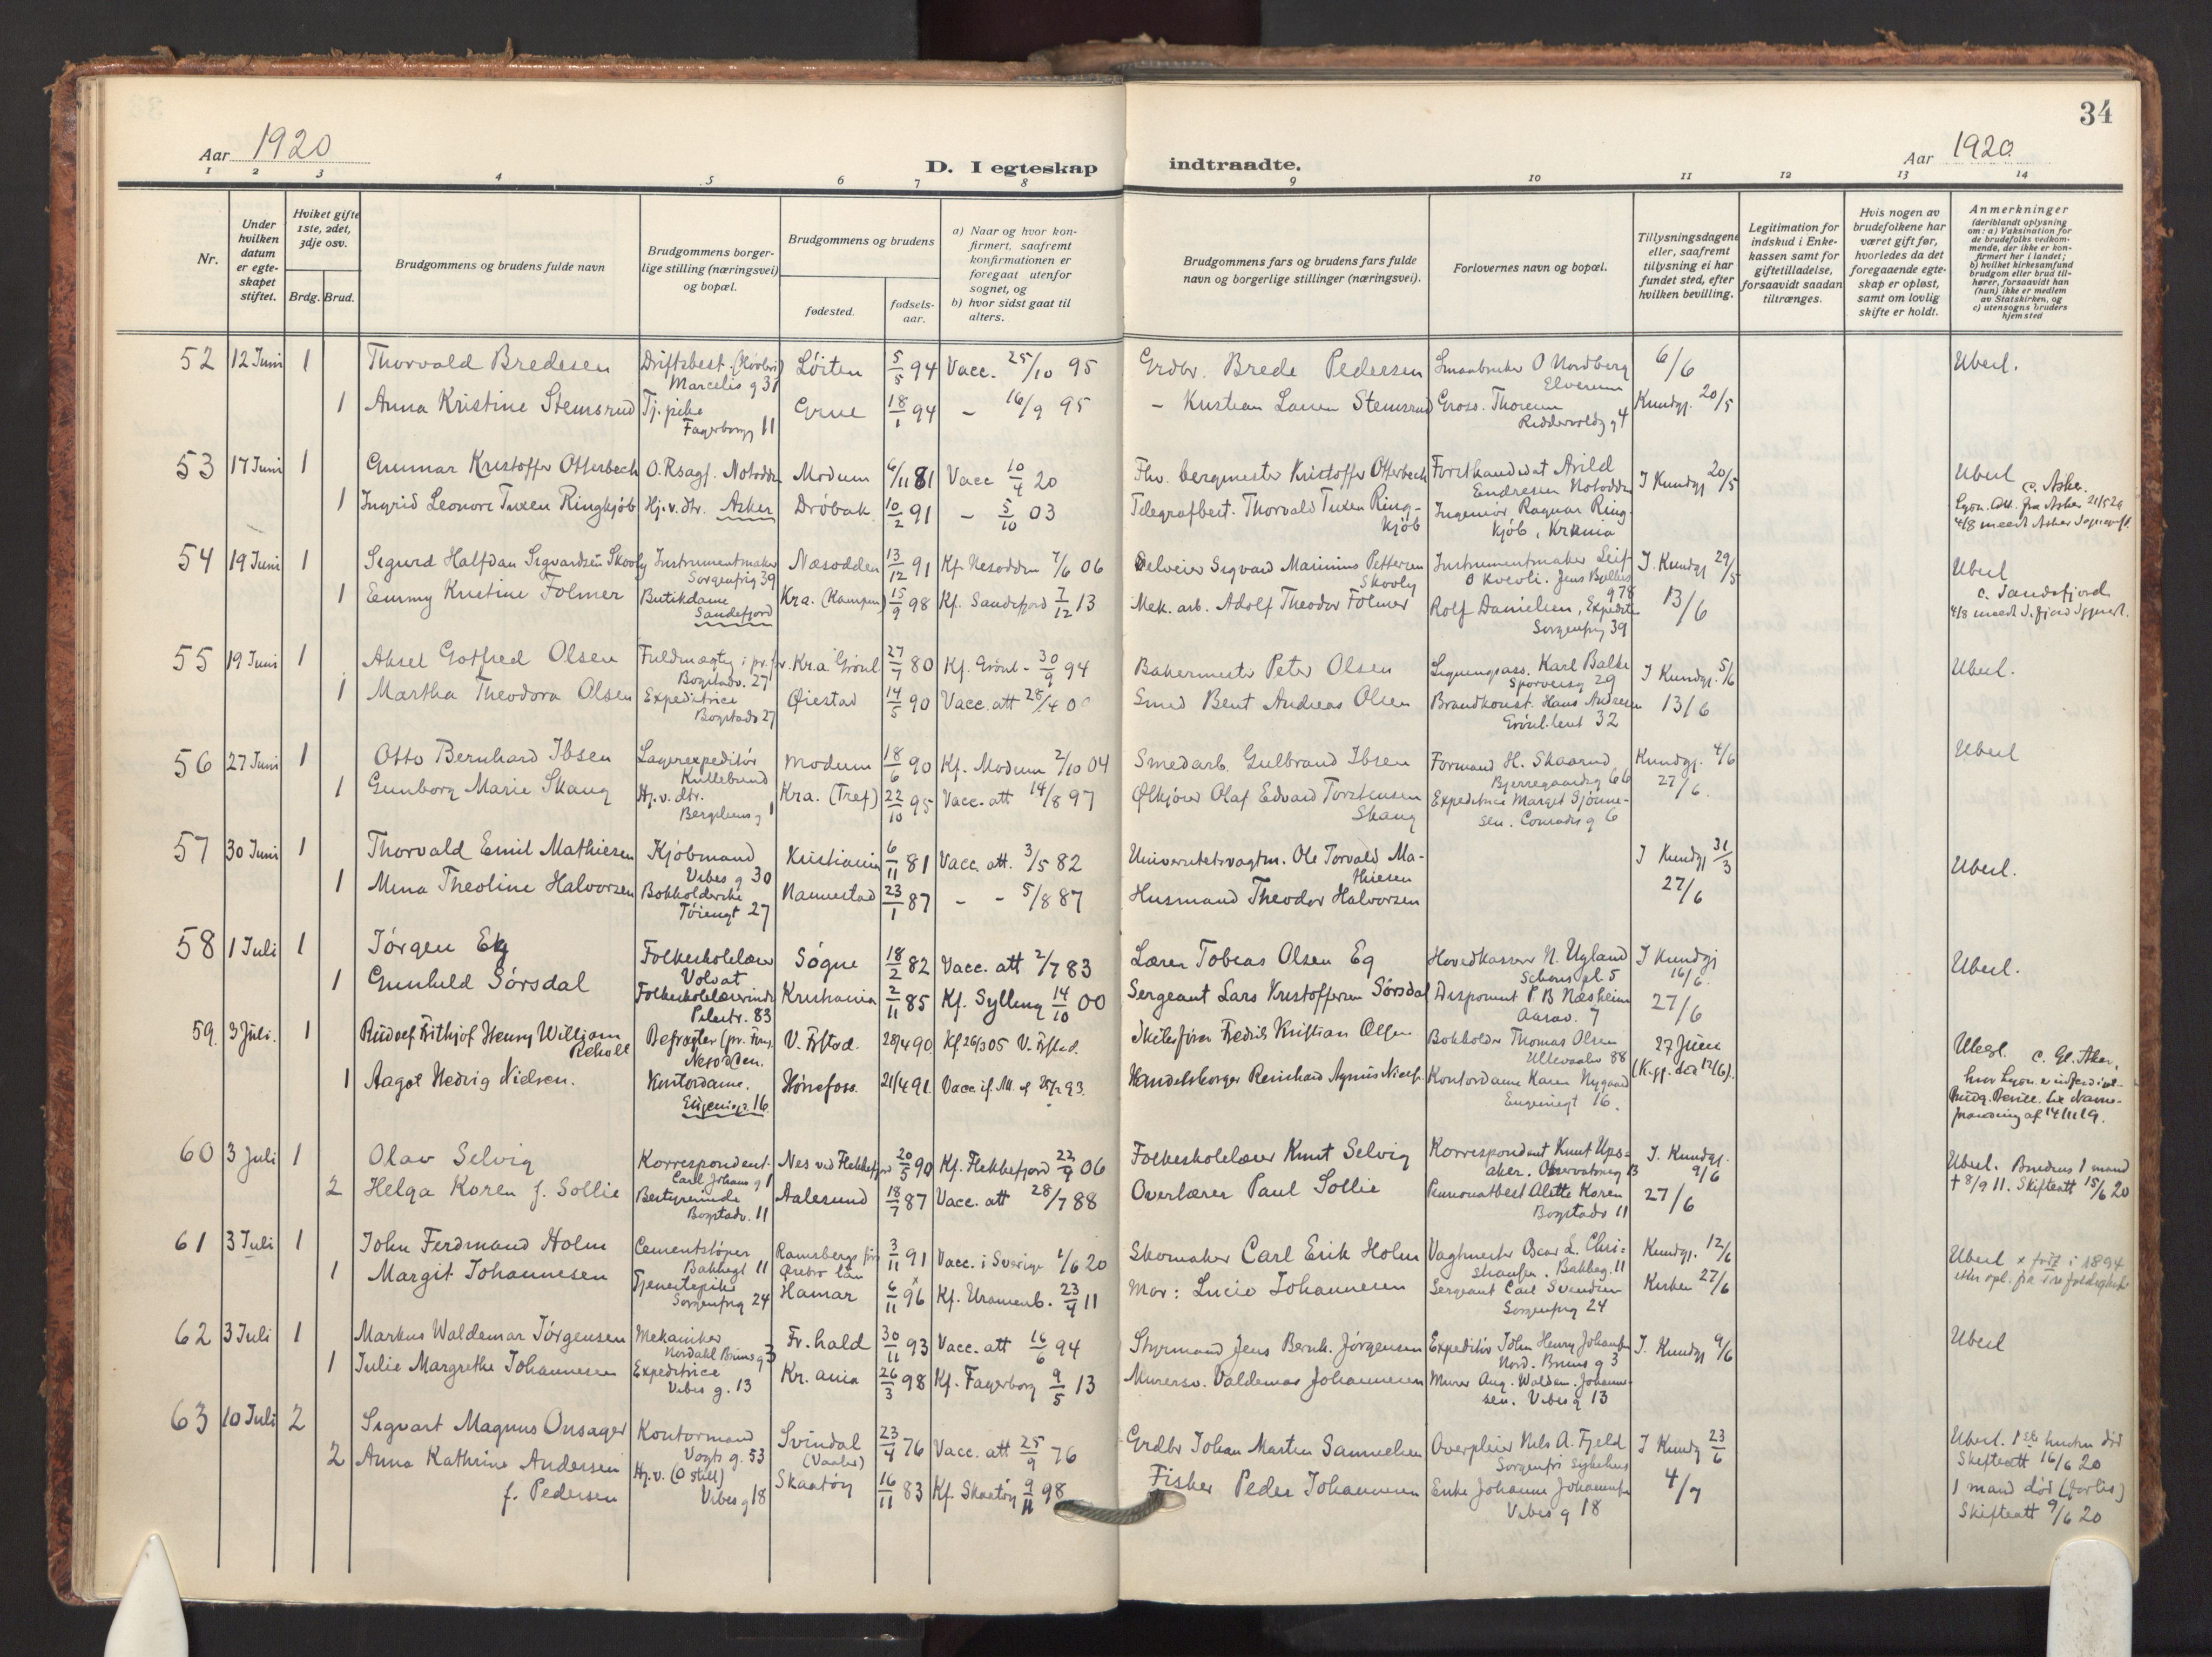 34
Aar 1920
D. I egteskap indtraadte.
Aar 1920
1 2 3 4 5 6 7 8 9 10 11 12 13 14
Nr.
Under hvilken datum er egteskapet stiftet.
Hvilket gifte 1ste, 2det, 3dje osv.
Brdg. Brud.
Brudgommens og brudens fulde navn
Brudgommens borgerlige stilling (næringsvei) og bopæl.
Brudgommens og brudens
fødested.
fødselsaar.
a) Naar og hvor konfirmert, saafremt konfirmationen er foregaat utenfor sognet, og
b) hvor sidst gaat til alters.
Brudgommens fars og brudens fars fulde navn og borgerlige stillinger (næringsvei).
Forlovernes navn og bopæl.
Tillysningsdagene eller, saafremt tillysning ei har fundet sted, efter hvilken bevilling.
Legitimation for indskud i Enkekassen samt for giftetilladelse, forsaavidt saadan tiltrænges.
Hvis nogen av brudefolkene har været gift før, hvorledes da det foregaaende egteskap er opløst, samt om lovlig skifte er holdt.
Anmerkninger
(deriblandt oplysning om: a) Vaksination for de brudefolks vedkommende, der ikke er konfirmert her i landet; b) hvilket kirkesamfund brudgom eller brud tilhører, forsaavidt han (hun) ikke er medlem av Statskirken, og c) utensogns bruders hjemsted
52 12 Juni 1 Thorvald Bredesen Driftsbest. Marcelis g 31 Løiten 5/5 94 Vacc. 25/10 95 Grdbr. Brede Pedersen Smaabruker O Nordberg Elverum 6/6 Ubesl.
1 Anna Kristine Stemsrud Tj. pike Fagerborgg 11 Grue 18/1 94 - 16/9 95 - Kristian Larsen Stemsrud Gross. Thoresen Riddervoldsg 4 Kundgj. 20/5
53 17 Juni 1 Gunnar Kristoffer Otterbech O.Rsagf. Notodden Modum 6/11 81 Vacc 10/4 20 Fhv. bergmester Kristoffer Otterbech Forstkandidat Arild Endresen Notodden I Kundgj 20/5 Ubesl c. Asker.
1 Ingrid Leonore Tuxen Ringkjøb Hj. v. dtr. Asker Drøbak 10/2 91 - 5/10 03 Telegrafbest. Thorvald Tuxen Ringkjøb Ingeniør Ragnar Ringkjøb, Krania
54 19 Juni 1 Sigurd Halfdan Sigvardsen Skovly Instrumentmaker Sorgenfrig 39 Næsodden 13/12 91 Kf. Nesodden 7/6 06 Selveier Sigvard Marinius Pettersen Skovly Instrumentmaker Leif O Kvevli. Jens Bjelkes g 78 I. Kundgj 29/5 Ubesl c. Sandefjord
1 Emmy Kristine Folmer Butikdame Sandefjord Kra. (Kampen) 15/9 98 Kf. Sandefjord 7/12 13 Mek. arb. Adolf Theodor Folmer Rolf Danielsen, Expeditør Sorgenfrig 39 13/6
55 19 Juni 1 Aksel Gotfred Olsen Fuldmægtig i pr. f. Bogstadv. 27 Kra Grønl 27/7 80 Kf. Grønl - 30/9 94 Bakermester Peter Olsen Ligningsass. Karl Balke Sporveisg 29 I Kundgj. 5/6 Ubesl.
1 Martha Theodora Olsen Expeditrice Bogstadv 27 Øiestad 14/5 90 Vacc. att 28/4 0 Smed Bent Andreas Olsen Brandkonst. Hans Andresen Grønl.leret 32 13/6
56 27 Juni 1 Otto Bernhard Ibsen Lagerexpeditør Kullebund Modum 18/6 90 Kf. Modum 2/10 04 Smedarb. Gulbrand Ibsen Formand H. Skaarud Bjerregaardsg 66 Kundgj. 4/6 Ubesl
1 Gunborg Marie Skaug Hj. v. dtr. Bergsliens g 1 Kra. (Tref) 22/10 95 Vacc. att 14/8 97 Ølkjører Olaf Edvard Torstensen Skaug Expeditrice Margit Sjønnesen. Conradis g 6 27/6.
57 30 Juni 1 Thorvald Emil Mathiesen Kjøbmand Vibes g 30 Kristiania 6/11 81 Vacc. att. 3/5 82 Universitetsvagtm. Ole Torvald Mathiesen I Kundgj 31/3 Ubesl.
1 Mina Theoline Halvorsen Bokholderske Tøiengt 27 Nannestad 23/1 87 - - 5/8 87 Husmand Theodor Halvorsen 27/6
58 1 Juli 1 Jørgen Eg Folkeskolelærer Volvat Søgne 18/2 82 Vacc. att 2/7 83 Lærer Tobias Olsen Eg Hovedkasserer N. Ugland Schous pl. 5 I Kundgj 16/6. Ubesl.
1 Gunhild Sørsdal Folkeskolelærerinde Pilestr. 83 Kristiania 2/11 85 Kf. Sylling 14/10 00 Sergeant Lars Kristoffersen Sørsdal Disponent P B Næsheim Aasv. 7 27/6
59. 3 Juli. 1 Rudolf Frithjof Henry William Reholt Befragter (pr. Firm. Nesodden. V. Frstad. 28/4 90 Kf. 26/3 05 V. Frstad. Skibsfører Fredrik Kristian Olsen Bokholder Thomas Olsen Ullevaalsv 88 27 Juni (K.gj. da 12/6). Ubesl. c. Gl. Aker,
1 Aagot Hedvig Nielsen. Kontordame. Eugeniegt. 16 Hønefoss. 21/4 91. Vacc. if. att. af 28/7 93. Handelsborger Reinhard Agnus Niels. Kontordame Karen Nygaard Eugeniegt 16.
60 3 Juli 1 Olav Selvig Korrespondent. Carl Johans g 1 Nes ved Flekkefjord 20/5 90 Kf. Flekkefjord 22/9 06 Folkeskolelærer Knut Selvig Korrespondent Knut Upsaker. Observatorieg 13 I. Kundgj. 9/6 Ubesl. Brudens 1 mand
2 Helga Koren f. Sollie Bestyrerinde Bogstadv. 11 Aalesund 18/7 87 Vacc. att 28/7 88 Overlærer Paul Sollie Pensionatbest Alette Koren Bogstadv 11 27/6 † 8/9 11. Skifteatt 15/6 20
61 3 Juli 1 John Ferdinand Holm Cementstøper Bakkegt 11 Ramsbergs Ørebro län 3/11 91 Vacc. i Sverige 1/6 20 Skomaker Carl Erik Holm Vagtmester Oscar L. Christiansen. Bakkeg. 11 Kundgj. 12/6 Ubesl x født i 1894
1 Margit Johannesen Tjenestepike Sorgenfrig 24 Hamar 6/11 96 x Kf. Uranienb. 23/4 11 Mor: Lucie Johannesen Sergeant Carl Svendsen Sorgenfrig 24 Kirken 27/6
62 3 Juli 1 Markus Waldemar Jørgensen Mekaniker Nordahl Bruns g 3 Fr. hald 30/11 93 Vacc. att 16/6 94 Styrmand Jens Bernh. Jørgensen Expeditør John Henry Johansen Nord. Bruns g 3 I. Kundgj 9/6 Ubesl
1 Julie Margrethe Johannesen Expeditrice Vibes g. 13 Kr. ania 26/3 98 Kf. Fagerborg 9/5 13 Murersv. Valdemar Johannesen Murer Aug. Waldem. Johannesen. Vibesg 13
63 10 Juli 2 Sigvart Magnus Onsager Kontormand Vogts g. 53 Svindal (Vaaler) 23/4 76 Vacc. att 25/9 76 Grdbr Johan Martin Samuelsen Overpleier Nils A. Fjeld Sorgenfri Sykehus I Kundgj 23/6 Ubesl. 1ste hustru død Skifteatt 16/6 20
2 Anna Kathrine Andersen f. Pedersen Hj. v. (O still) Vibes g 18 Skaatøy 16/11 83 Kf. Skaatøy 9/11 98 Fisker Peder Johannesen Enke Johanne Johannesen Vibes g 18 4/7 1 mand død (forlis) Skifteatt 9/6 20